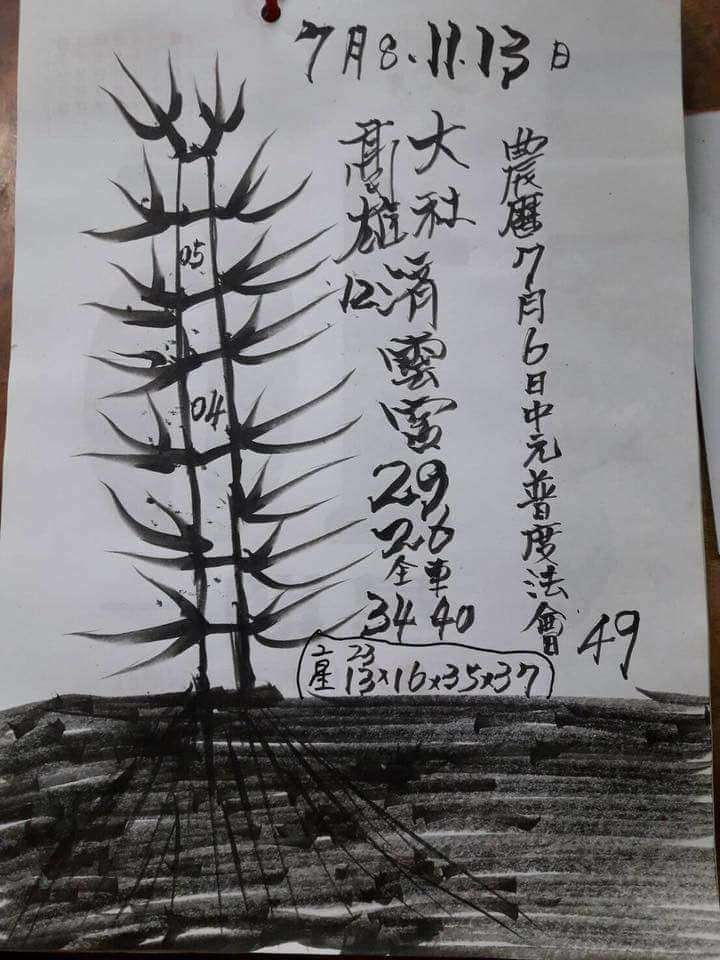 7月8.11.13日
農曆7月6日中元普度法會
49
大社
高雄
12
濟雲宮
29
26
全車
34 40
二星 23
13×16×35×37
05
04